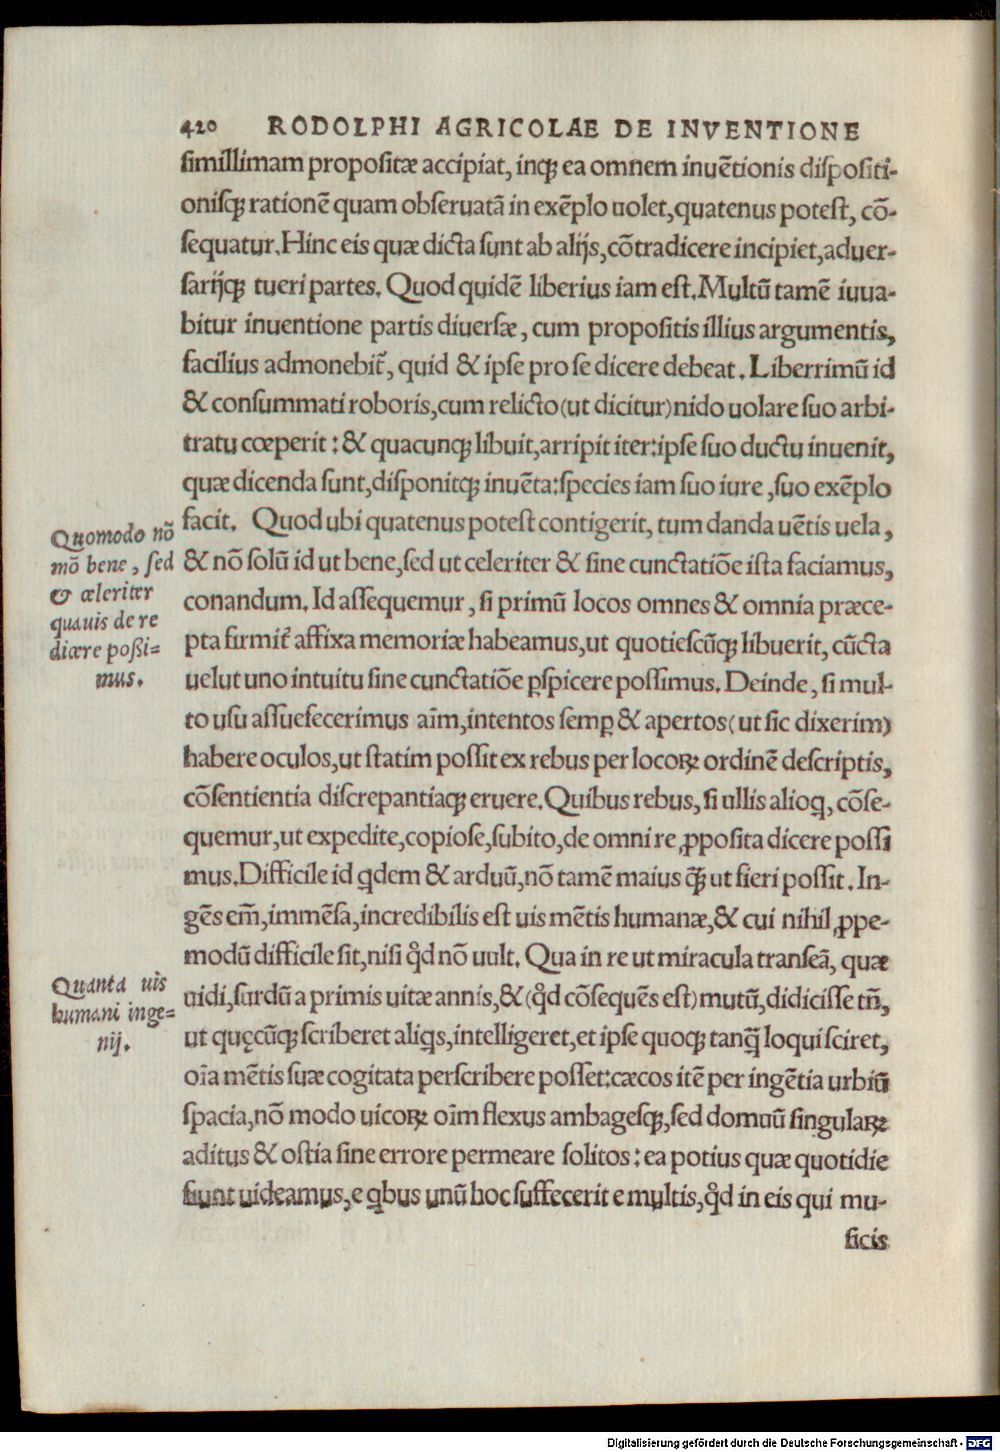 420 RODOLPHI AGRICOLAE DE INVENTIONE
simillimam propositæ accipiat, inq́; ea omnem inuētionis dispositi-
onisq́; rationē quam obseruatā in exēplo uolet, quatenus potest, cō-
sequatur. Hinc eis quæ dicta sunt ab alijs, cōtradicere incipiet, aduer-
sarijq́; tueri partes. Quod quidē liberius iam est. Multū tamē iuua-
bitur inuentione partis diuersæ, cum propositis illius argumentis,
facilius admonebit᷑, quid & ipse pro se dicere debeat. Liberrimū id
& consummati roboris, cum relicto (ut dicitur) nido uolare suo arbi-
tratu cœperit: & quacunq; libuit, arripit iter: ipse suo ductu inuenit,
quæ dicenda sunt, disponitq́; inuēta: species iam suo iure, suo exēplo
facit. Quod ubi quatenus potest contigerit, tum danda uētis uela,
& nō solū id ut bene, sed ut celeriter & sine cunctatiōe ista faciamus,
conandum. Id assequemur, si primū locos omnes & omnia præce-
pta firmit᷑ affixa memoriæ habeamus, ut quotiescūq; libuerit, cūcta
uelut uno intuitu sine cunctatiōe ꝑspicere possimus. Deinde, si mul-
to usu assuefecerimus aīm, intentos semꝑ & apertos (ut sic dixerim)
habere oculos, ut statim possit ex rebus per locoꝝ ordinē descriptis,
cōsentientia discrepantiaq́; eruere. Quibus rebus, si ullis alioq, cōse-
quemur, ut expedite, copiose, subito, de omni re ꝓposita dicere possi
mus. Difficile id qdem & arduū, nō tamē maius q̃ȝ ut fieri possit. In-
gēs em̄, immēsa, incredibilis est uis mētis humanæ, & cui nihil ꝓpe-
modū difficile sit, nisi qd̉ nō uult. Qua in re ut miracula transeā, quæ
uidi, surdū a primis uitæ annis, & (qd̉ cōsequēs est) mutū, didicisse tn̄,
ut quęcūq; scriberet aliqs, intelligeret, et ipse quoq; tanq̃ loqui sciret,
oīa mētis suæ cogitata perscribere posset: cæcos itē per ingētia urbiū
spacia, nō modo uicoꝝ oīm flexus ambagesq́;, sed domuū singulaꝝ
aditus & ostia sine errore permeare solitos: ea potius quæ quotidie
fiunt uideamus, e qbus unū hoc suffecerit e multis, qd̉ in eis qui mu-
sicis
Quomodo nō
mō bene, sed
& celeriter
quauis de re
dicere possi=
mus.
Quanta uis
humani inge=
nij.
Digitalisierung gefördert durch die Deutsche Forschungsgemeinschaft - DFG